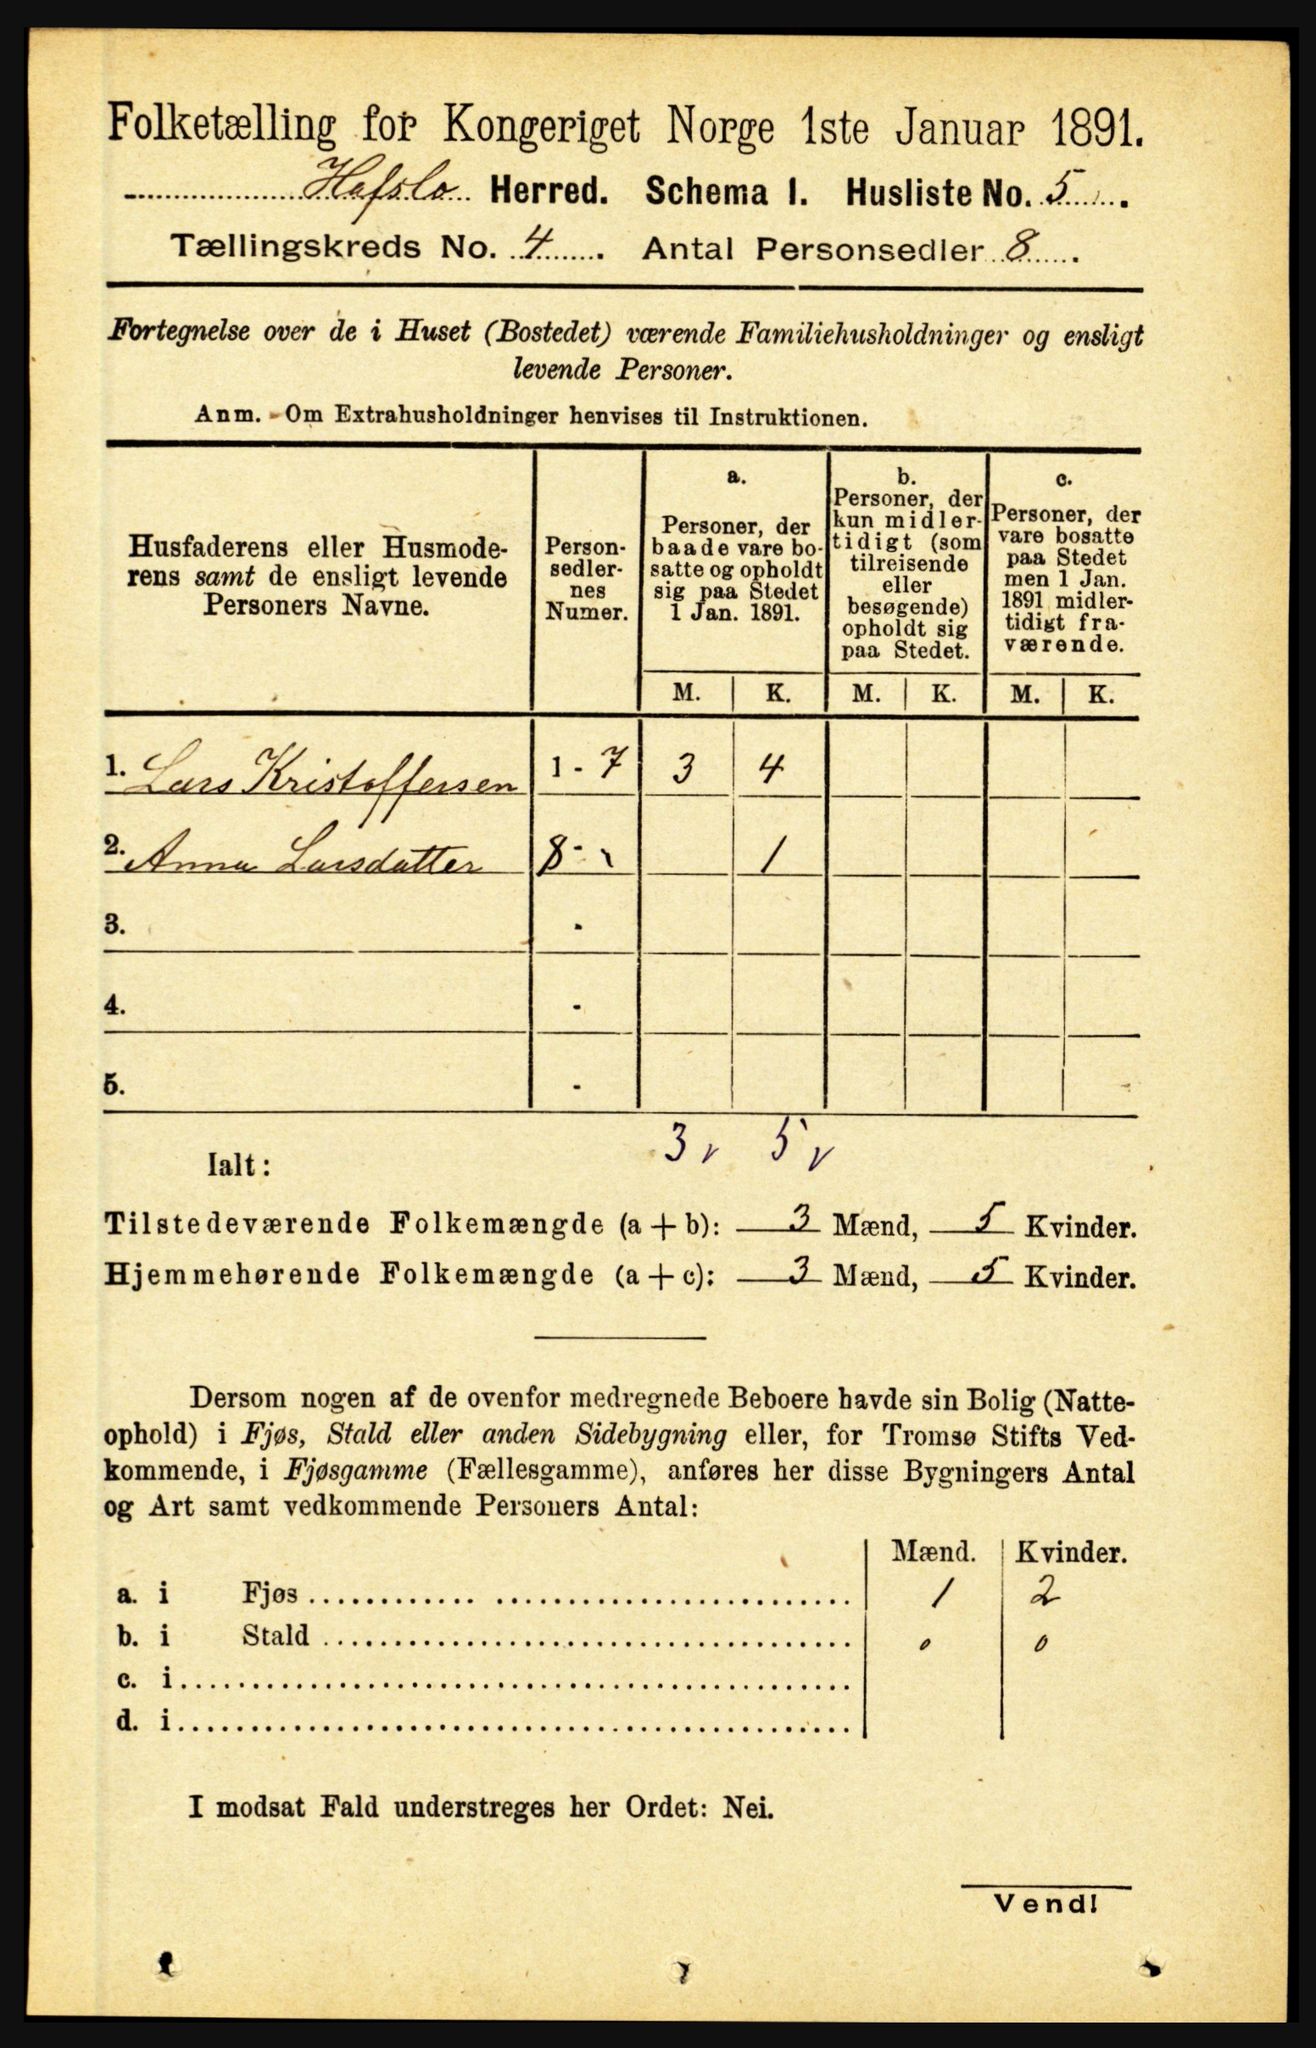 Folketælling for Kongeriget Norge 1ste Januar 1891.
Hafslo Herred. Schema I. Husliste No. 5.
Tællingskreds No. 4. Antal Personsedler 8.
Fortegnelse over de i Huset (Bostedet) værende Familiehusholdninger og ensligt
levende Personer.
Anm. Om Extrahusholdninger henvises til Instruktionen.
Husfaderens eller Husmode-
rens samt de ensligt levende
Personers Navne.
Person-
sedler-
nes
Numer.
a.
Personer, der
baade vare bo-
satte og opholdt
sig paa Stedet
1 Jan. 1891.
b.
Personer, der
kun midler-
tidigt (som
tilreisende
eller
besøgende)
opholdt sig
paa Stedet.
c.
Personer, der
vare bosatte
paa Stedet
men 1 Jan.
1891 midler-
tidigt fra-
værende.
M. K. M. K. M. K.
1. Lars Kristoffersen 1 - 7 3 4
2. Anna Larsdatter 8 - 1
3. -
4. -
5. -
3 5
Ialt:
Tilstedeværende Folkemængde (a + b): 3 Mænd, 5 Kvinder.
Hjemmehørende Folkemængde (a + c): 3 Mænd, 5 Kvinder.
Dersom nogen af de ovenfor medregnede Beboere havde sin Bolig (Natte-
ophold) i Fjøs, Stald eller anden Sidebygning eller, for Tromsø Stifts Ved-
kommende, i Fjøsgamme (Fællesgamme), anføres her disse Bygningers Antal
og Art samt vedkommende Personers Antal:
Mænd. Kvinder.
a. i Fjøs 1 2
b. i Stald 0 0
c. i
d. i
I modsat Fald understreges her Ordet: Nei.
Vend!